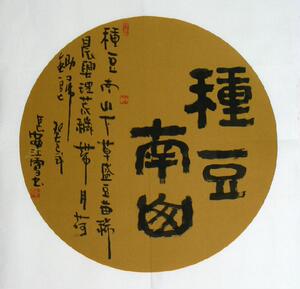 種豆
南亩
種豆南山下草盛豆苗稀
晨興理荒穢帶月荷
鋤歸
江雪书